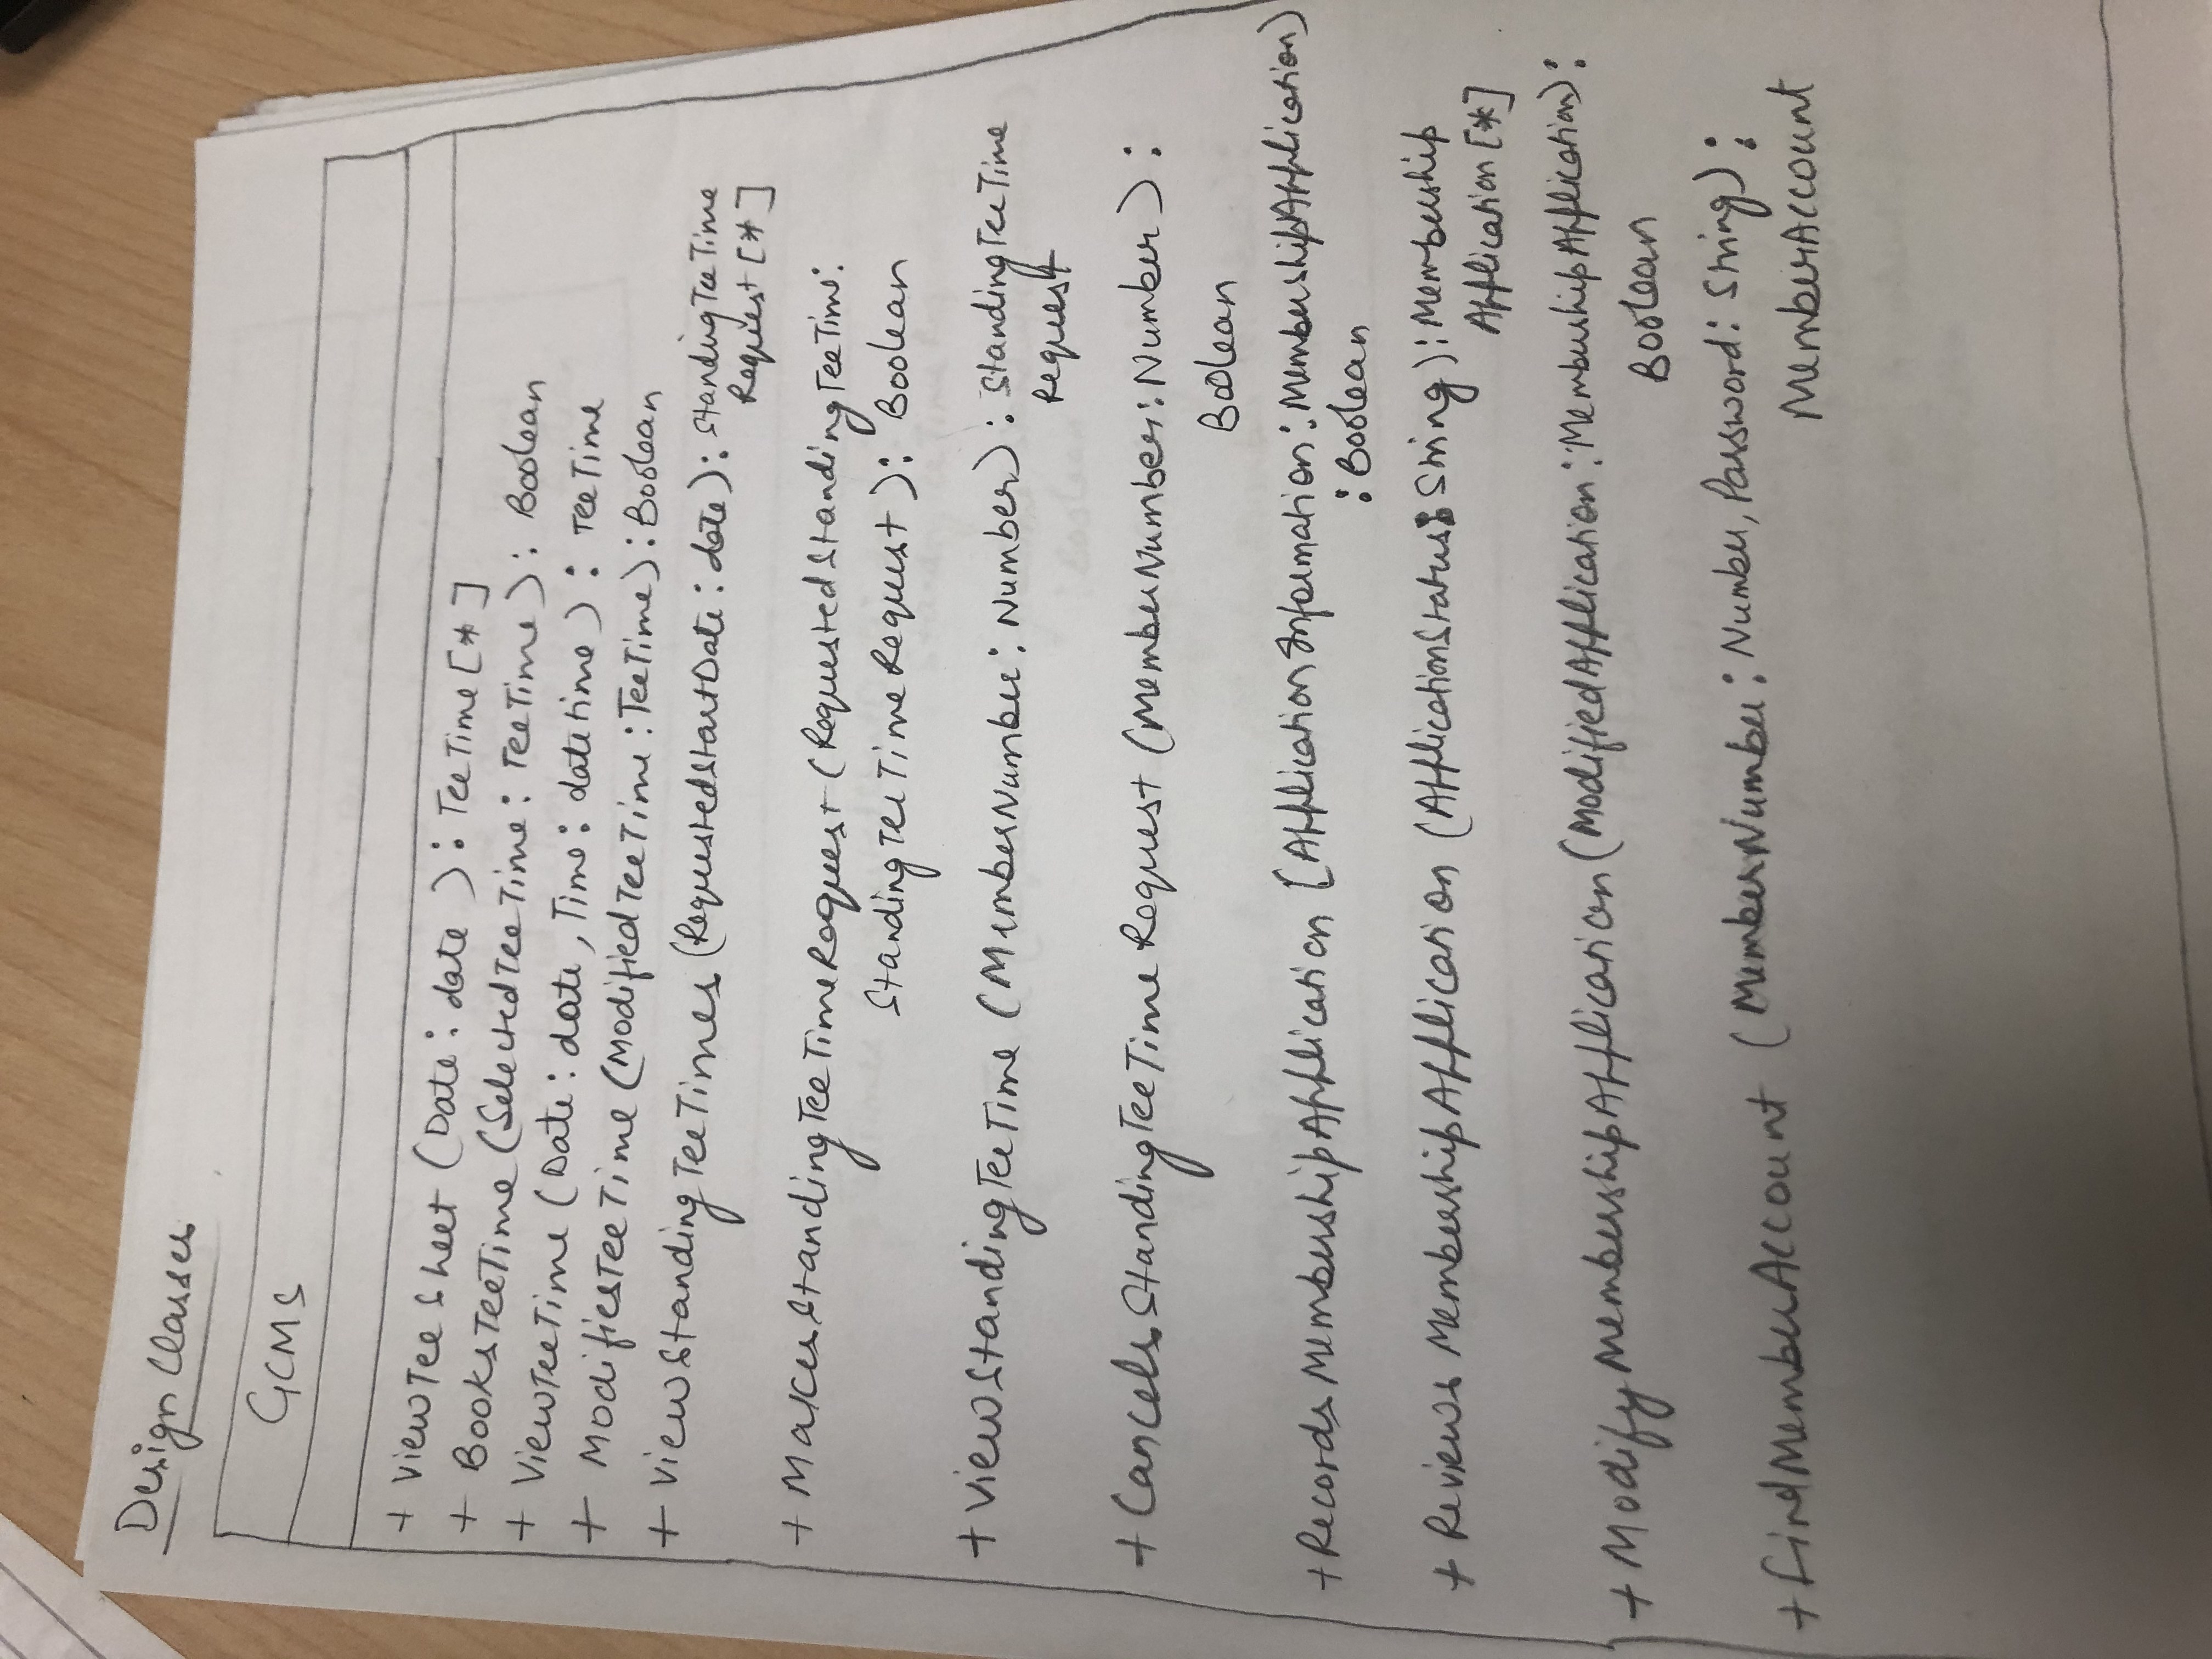 Design Classes
GCMS
+ ViewTeeSheet (Date: date ): TeeTime [*]
+ BooksTeeTime (SelectedTeeTime: TeeTime): Boolean
+ ViewTeeTime (Date: date, Time: datetime): TeeTime
+ ModifiesTeeTime (ModifiedTeeTime: TeeTime): Boolean
+ ViewStandingTeeTimes (RequestedStartDate: date): StandingTeeTime
Request [*]
+ MakesStandingTeeTimeRequest (RequestedStandingTeeTime:
StandingTeeTimeRequest): Boolean
+ ViewStandingTeeTime (MemberNumber: Number): StandingTeeTime
Request
+ CancelsStandingTeeTimeRequest (MemberNumber: Number):
Boolean
+ RecordsMembershipApplication [ApplicationInformation: MembershipApplication)
: Boolean
+ ReviewsMembershipApplication (ApplicationStatus: String): Membership
Application [*]
+ ModifyMembershipApplication (ModifiedApplication: MembershipApplication):
Boolean
+ FindMemberAccount (MemberNumber: Number, Password: String):
MemberAccount